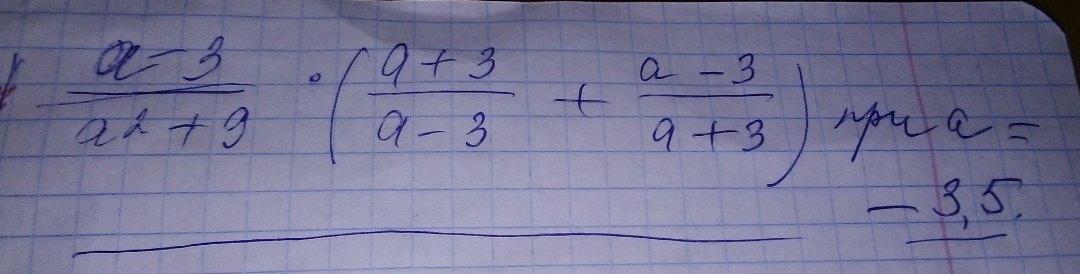 a - 3 / a² + 9 · ( a + 3 / a - 3 + a - 3 / a + 3 ) при a =
- 3,5.